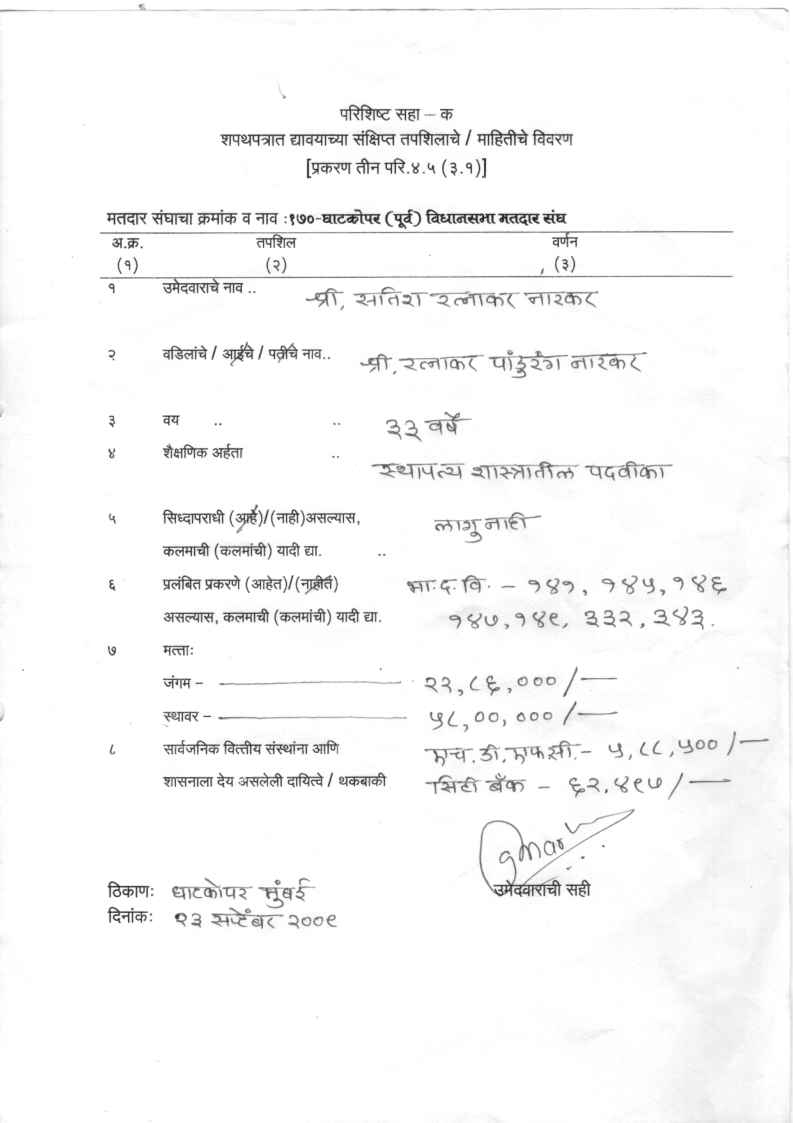 परिशिष्ट सहा – क
शपथपत्रात द्यावयाच्या संक्षिप्त तपशिलाचे / माहितीचे विवरण
[प्रकरण तीन परि.४.५ (३.१)]
मतदार संघाचा क्रमांक व नाव :१७०-घाटकोपर (पूर्व) विधानसभा मतदार संघ
अ.क्र. तपशिल वर्णन
(१) (२) (३)
१ उमेदवाराचे नाव .. श्री, सतिश रत्नाकर नारकर
२ वडिलांचे / आईचे / पतीचे नाव.. श्री. रत्नाकर पांडुरंग नारकर
३ वय .. .. ३३ वर्षे
४ शैक्षणिक अर्हता .. स्थापत्य शास्त्रातील पदवीका
५ सिध्दापराधी (आहे)/(नाही)असल्यास, लागु नाही
कलमाची (कलमांची) यादी द्या. ..
६ प्रलंबित प्रकरणे (आहेत)/(नाहीत) भा.द.वि. – १४१, १४५, १४६
असल्यास, कलमाची (कलमांची) यादी द्या. १४७, १४९, ३३२, ३४३.
७ मत्ताः
जंगम – २२,८६,००० /–
स्थावर – ५८,००,००० /–
८ सार्वजनिक वित्तीय संस्थांना आणि एच.डी.एफ.सी.– ५,८८,५०० /–
शासनाला देय असलेली दायित्वे / थकबाकी सिटी बँक – ६२,४९७ /–
उमेदवाराची सही
ठिकाणः घाटकोपर मुंबई
दिनांकः २३ सप्टेंबर २००९